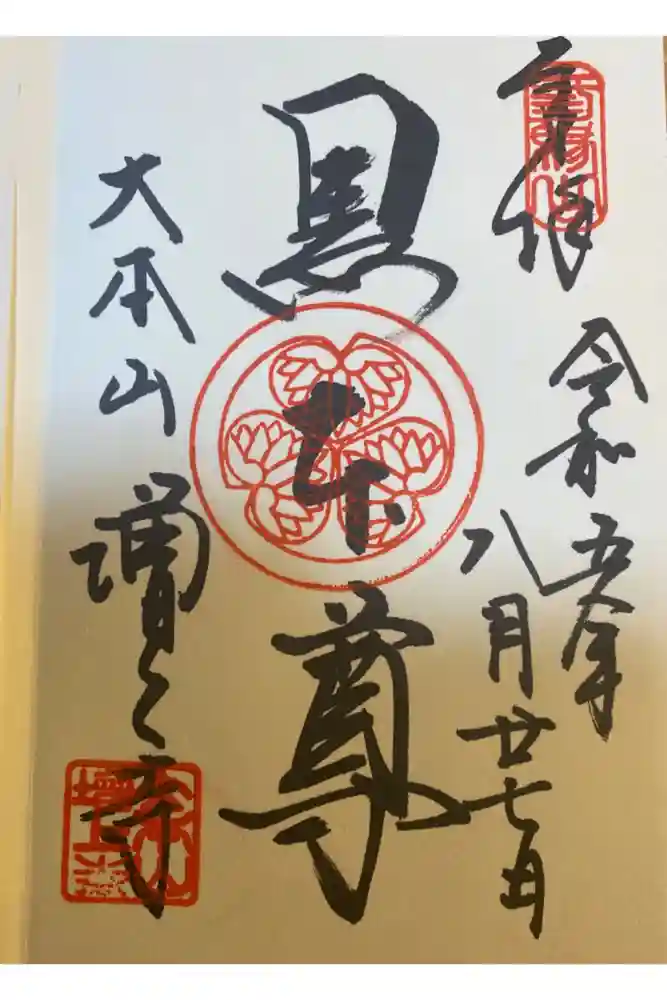 奉拝
令和五年
八月廿七日
黒本尊
大本山 増上寺